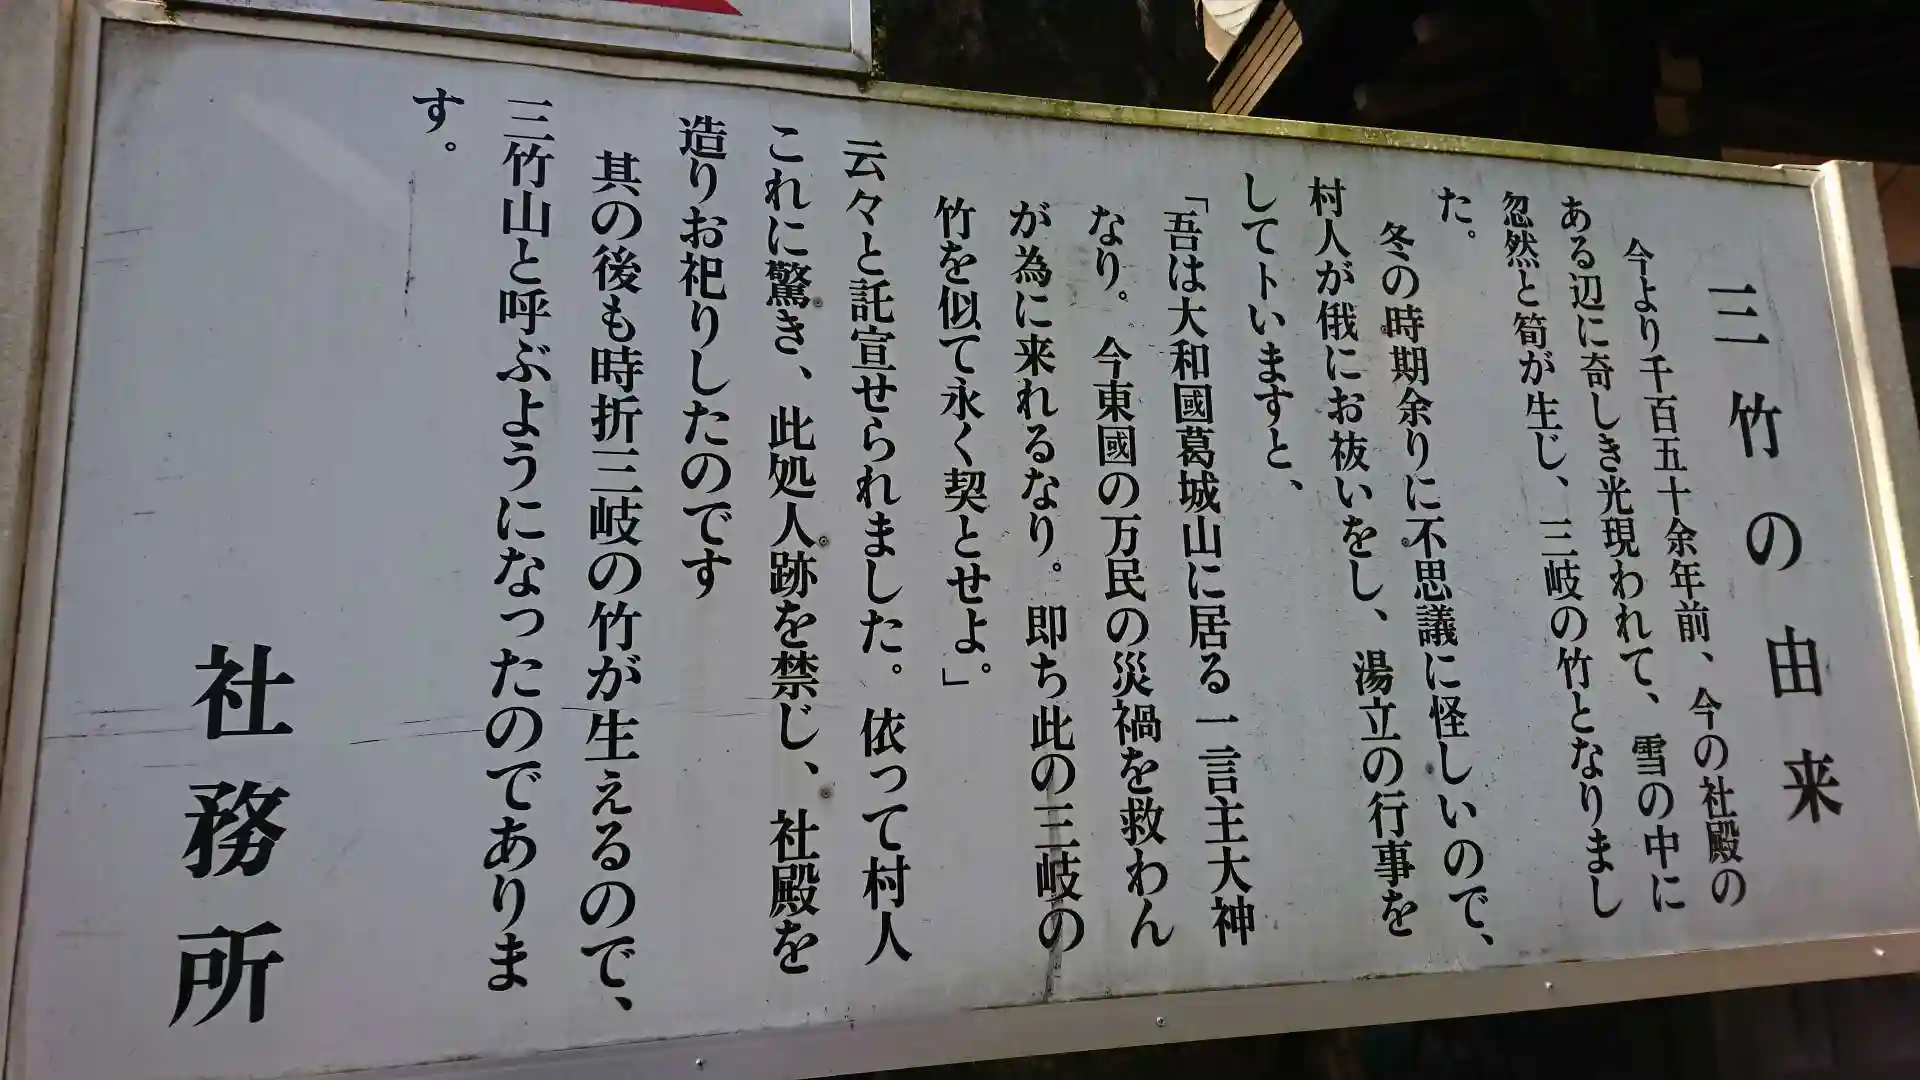 三竹の由来
今より千百五十余年前、今の社殿の
ある辺に奇しき光現われて、雪の中に
忽然と筍が生じ、三岐の竹となりまし
た。
冬の時期余りに不思議に怪しいので、
村人が俄にお祓いをし、湯立の行事を
してトいますと、
「吾は大和國葛城山に居る一言主大神
なり。今東國の万民の災禍を救わん
が為に来れるなり。即ち此の三岐の
竹を似て永く契とせよ。」
云々と託宣せられました。依って村人
これに驚き、此処人跡を禁じ、社殿を
造りお祀りしたのです
其の後も時折三岐の竹が生えるので、
三竹山と呼ぶようになったのでありま
す。
社務所